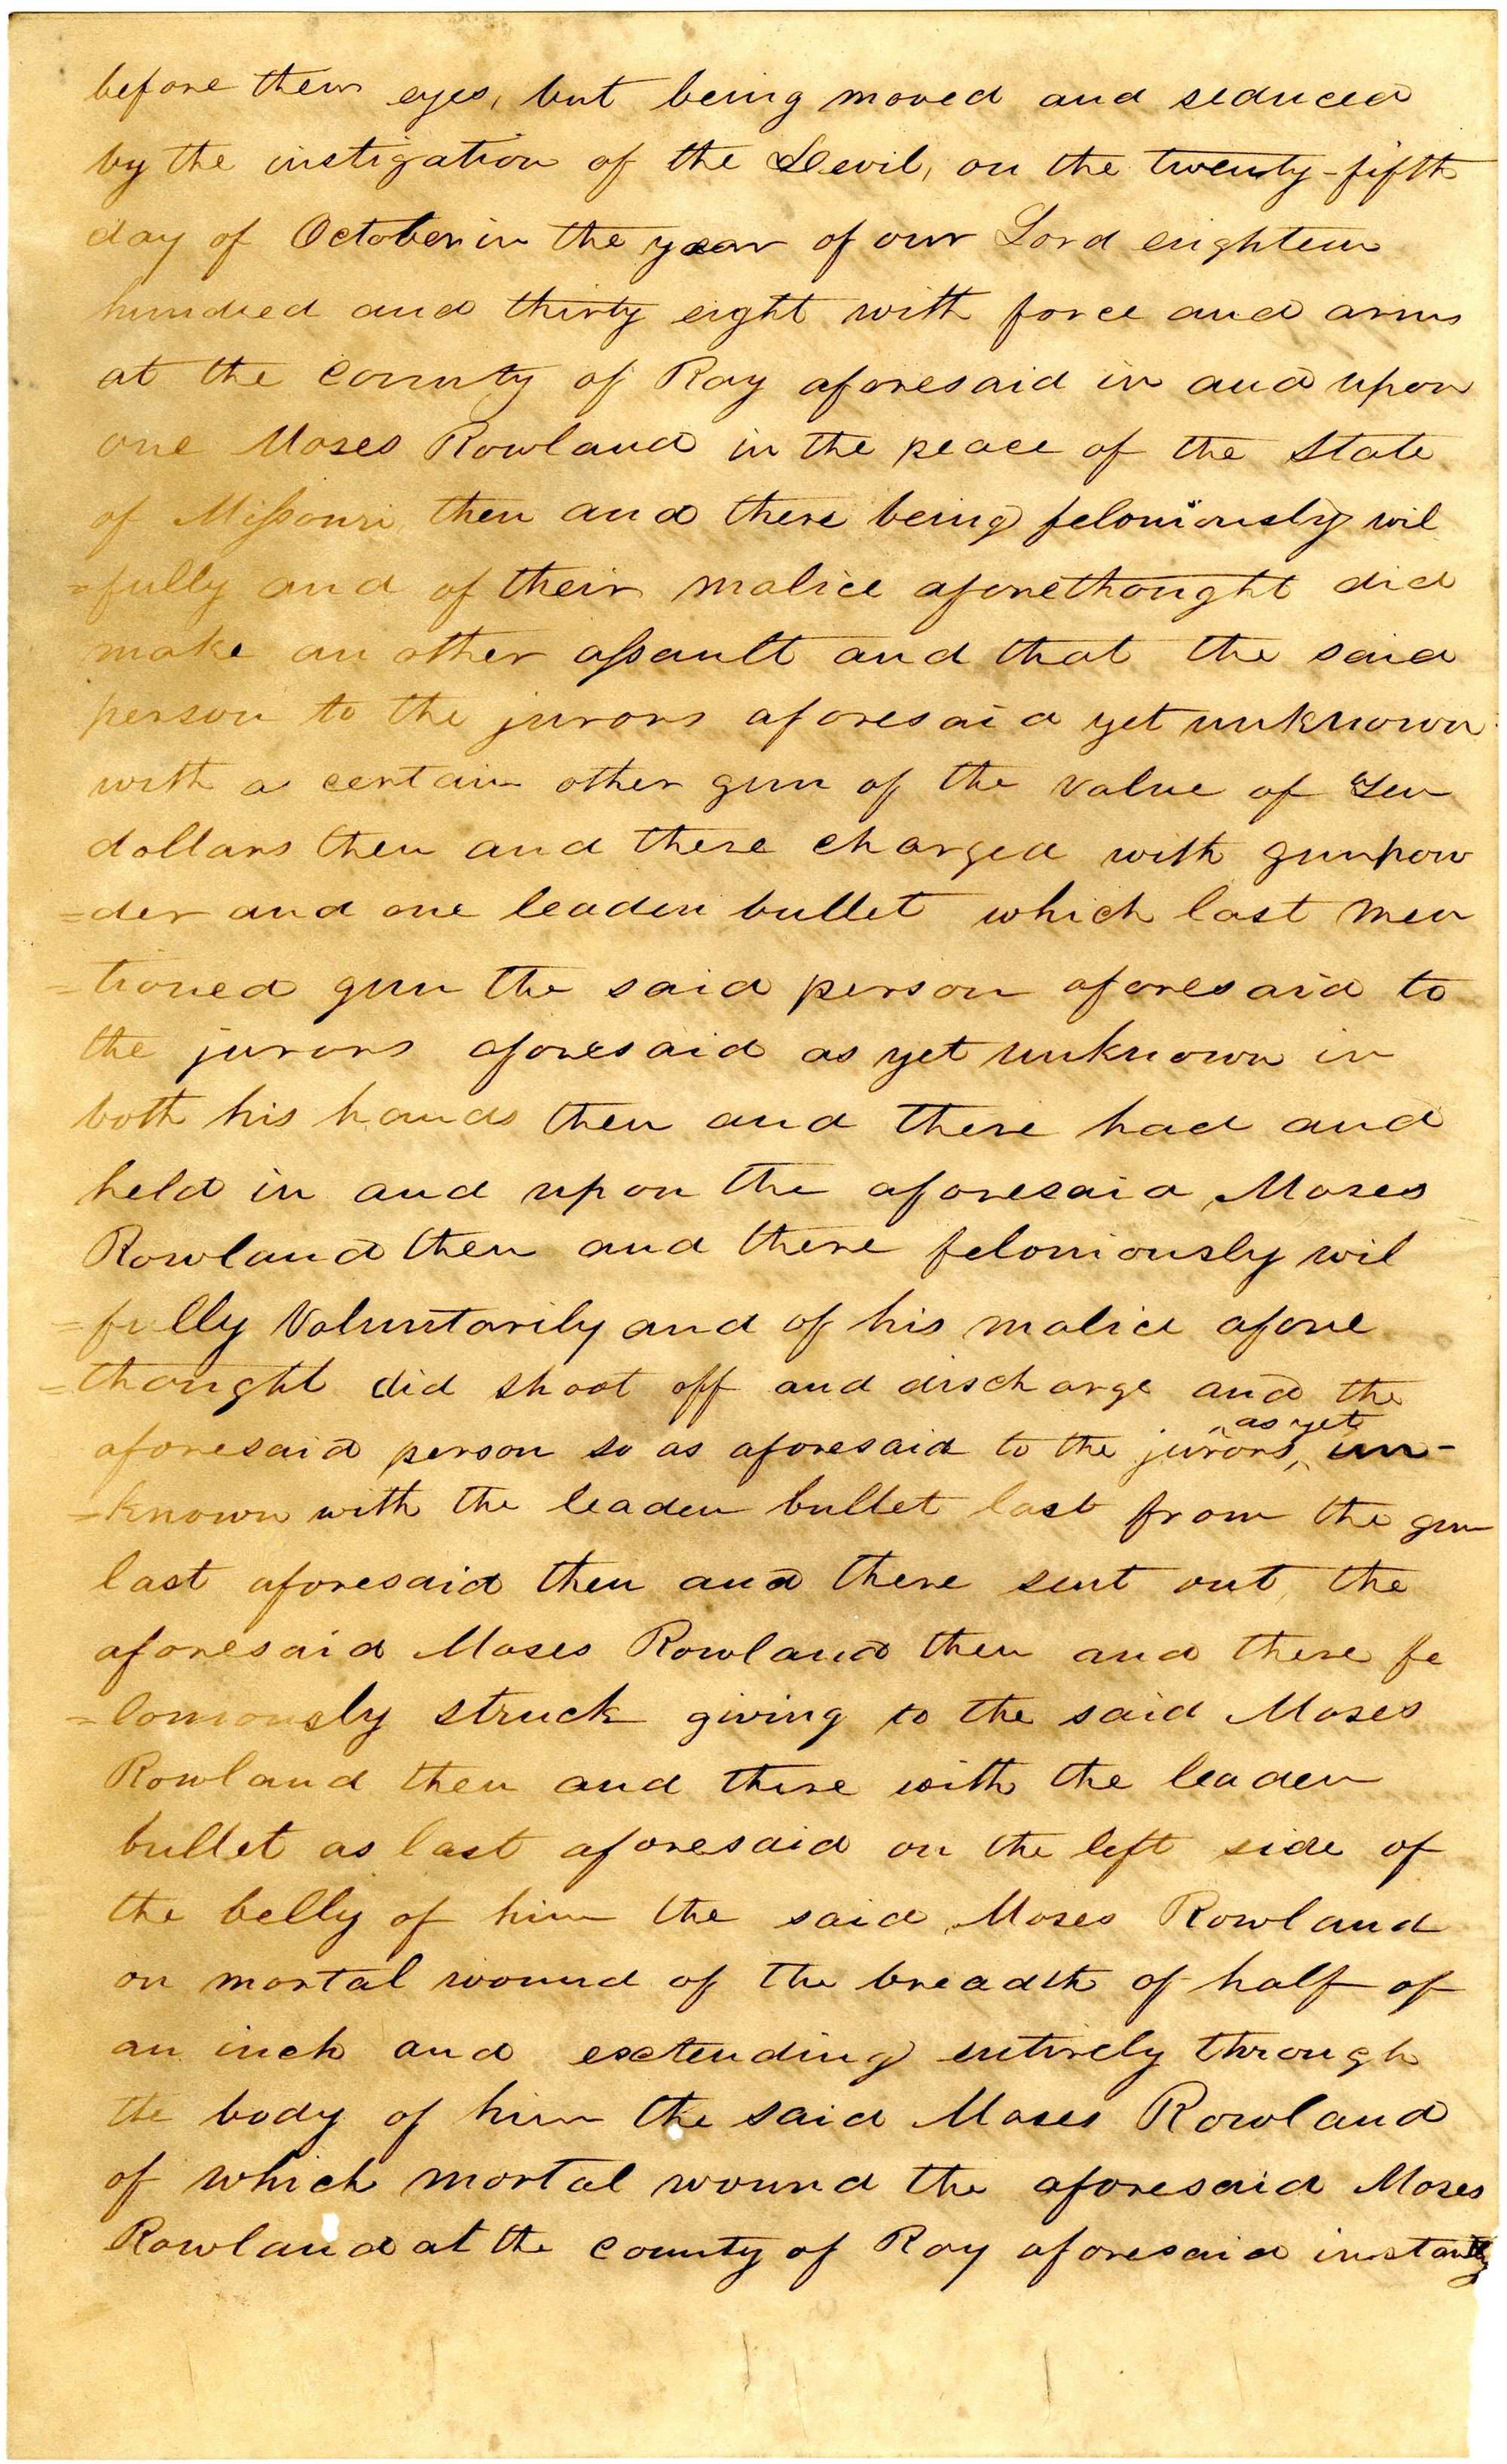 before their eyes, but being moved and seduced
by the instigation of the Devil, on the twenty-fifth
day of October in the year of our Lord eighteen
hundred and thirty eight with force and arms
at the County of Ray aforesaid in and upon
one Moses Rowland in the peace of the State
of Missouri then and there being feloniously wil
=fully and of their malice aforethought did
make an other assault and that the said
person to the jurors aforesaid yet unknown
with a certain other gun of the value of Ten
dollars then and there charged with gunpow
=der and one leaden bullet which last men
=tioned gun the said person aforesaid to
the jurors aforesaid as yet unknown in
both his hands then and there had and
held in and upon the aforesaid Moses
Rowland then and there feloniously wil
=fully Voluntarily and of his malice afore
=thought did shoot off and discharge and the
aforesaid person so as aforesaid to the jurors, as yet un-
=known with the leaden bullet last from the gun
last aforesaid then and there sent out, the
aforesaid Moses Rowland then and there fe
=loniously struck giving to the said Moses
Rowland then and there with the leaden
bullet as last aforesaid on the left side of
the belly of him the said Moses Rowland
on mortal wound of the breadth of half of
an inch and extending entirely through
the body of him the said Moses Rowland
of which mortal wound the aforesaid Moses
Rowland at the county of Ray aforesaid instantly